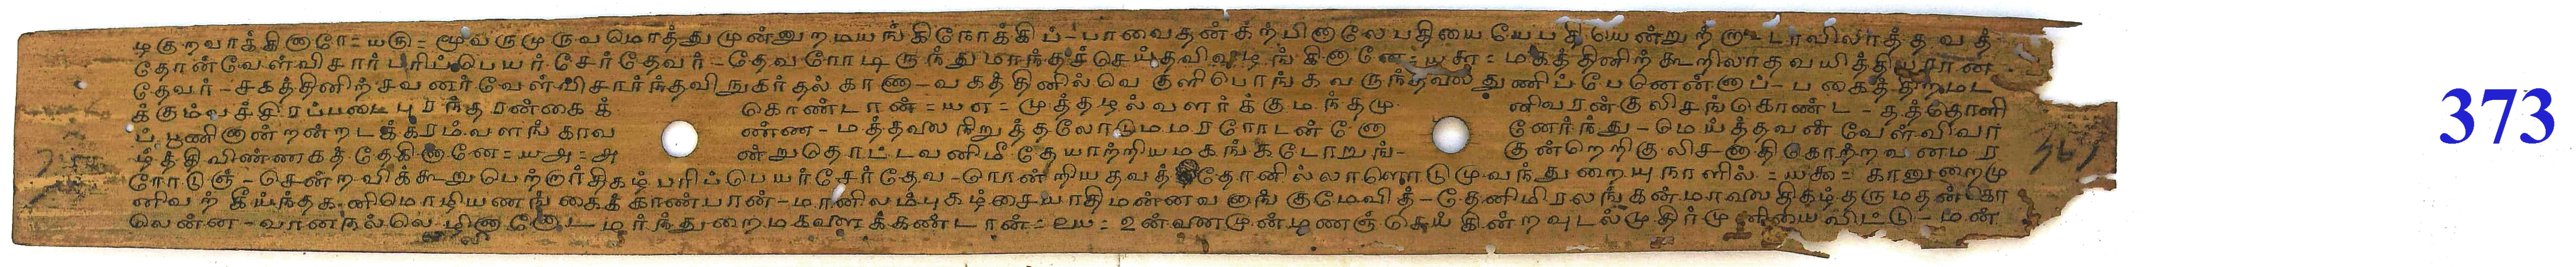 ழகுறவாக்கினாரே = யரு - மூவருமுருவமொத்துமுன்னுறமயங்கிநோக்கிப் - பாவைதன்கற்பினாலேபதியையேபதியென்று தவத்
தோன்வேள்விசார்பரிப்பெயர்சேர்தேவர் - தேவரோடிருந்துமாந்தச்செய்தவிவழங்கினானே = யசா = மகத்தினிற்கூறிலாதவயித்தியரான
தேவர் - சகத்தினிற்சவனர்வேள்விசார்ந்தவிநுகர்தல்காணா - வகத்தினில்வெகுளிபொங்க துணிப்பேனென்னாப் - பகைத்திறமட
க்கும்வச்சிரப்படைபுரந்தரன்கைக் கொண்டான் = யஎ = முத்தழல்வளர்க்குமந்தமு னிவரன்குலிசங்கொண்ட - தத்தோளி
ப் பூணினான்றன்றடக்கரம்வளங்காவ ண்ண - மத்தவலநிறுத்தலோடுமமரரோடன் னேர்ந்து - மெய்த்தவன்வேள்விவர்
ழ்த்திவிண்ணகத்தேகினானே = யஅ = அ ன்றுதொட்டவனிமீதேயாற்றியமகங்கடோறுங் - குன்றெறிகுலிசனாதிகொற்றவனமர
ரோடுஞ் - சென்றவிக்கூறுபெற்றார்திகழ்பரிப்பெயர்சேர்தேவ - ரொன்றியதவத் தோனில்லாளொடுமுவந்துறையுநாளில் = யகூ = கானுறைமு
னிவற்கீய்ந்தக னிமொழியணங்கைக்காண்பான் - மானிலம்புகழ்சையாதிமன்னவனாங்குமேவித் - தேனிமிரலங்கன்மாலைதிகழ்தருமதன்கொ
லென்ன - வானநல்லெழி மர்ந்துறைமகளைக்கண்டான் = உய = உன்வணமுன்மணஞ்செய்கின்றவுடல்முதிர்மு ளியைவிட்டு - மன்
373